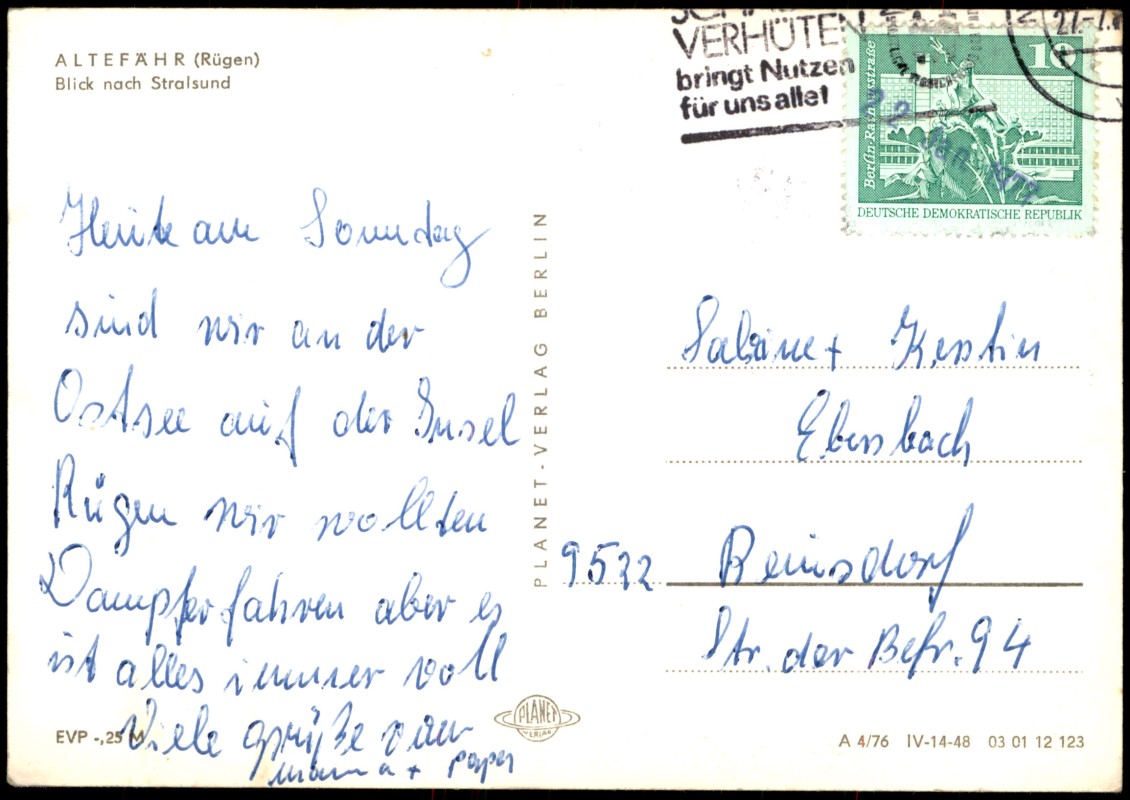 ALTEFÄHR (Rügen)
Blick nach Stralsund
VERHÜTEN
bringt Nutzen
für uns alle!
10
Berlin-Rathausstraße
DEUTSCHE DEMOKRATISCHE REPUBLIK
Heute am Sonntag
sind wir an der
Ostsee auf der Insel
Rügen wir wollten
Dampfer fahren aber es
ist alles immer voll
Viele grüße von
mama + papa
PLANET-VERLAG BERLIN
Sabine + Kerstin
Ebersbach
9532 Reinsdorf
Str. der Befr. 94
PLANET
VERLAG
EVP -,25 M
A 4/76 IV-14-48 03 01 12 123